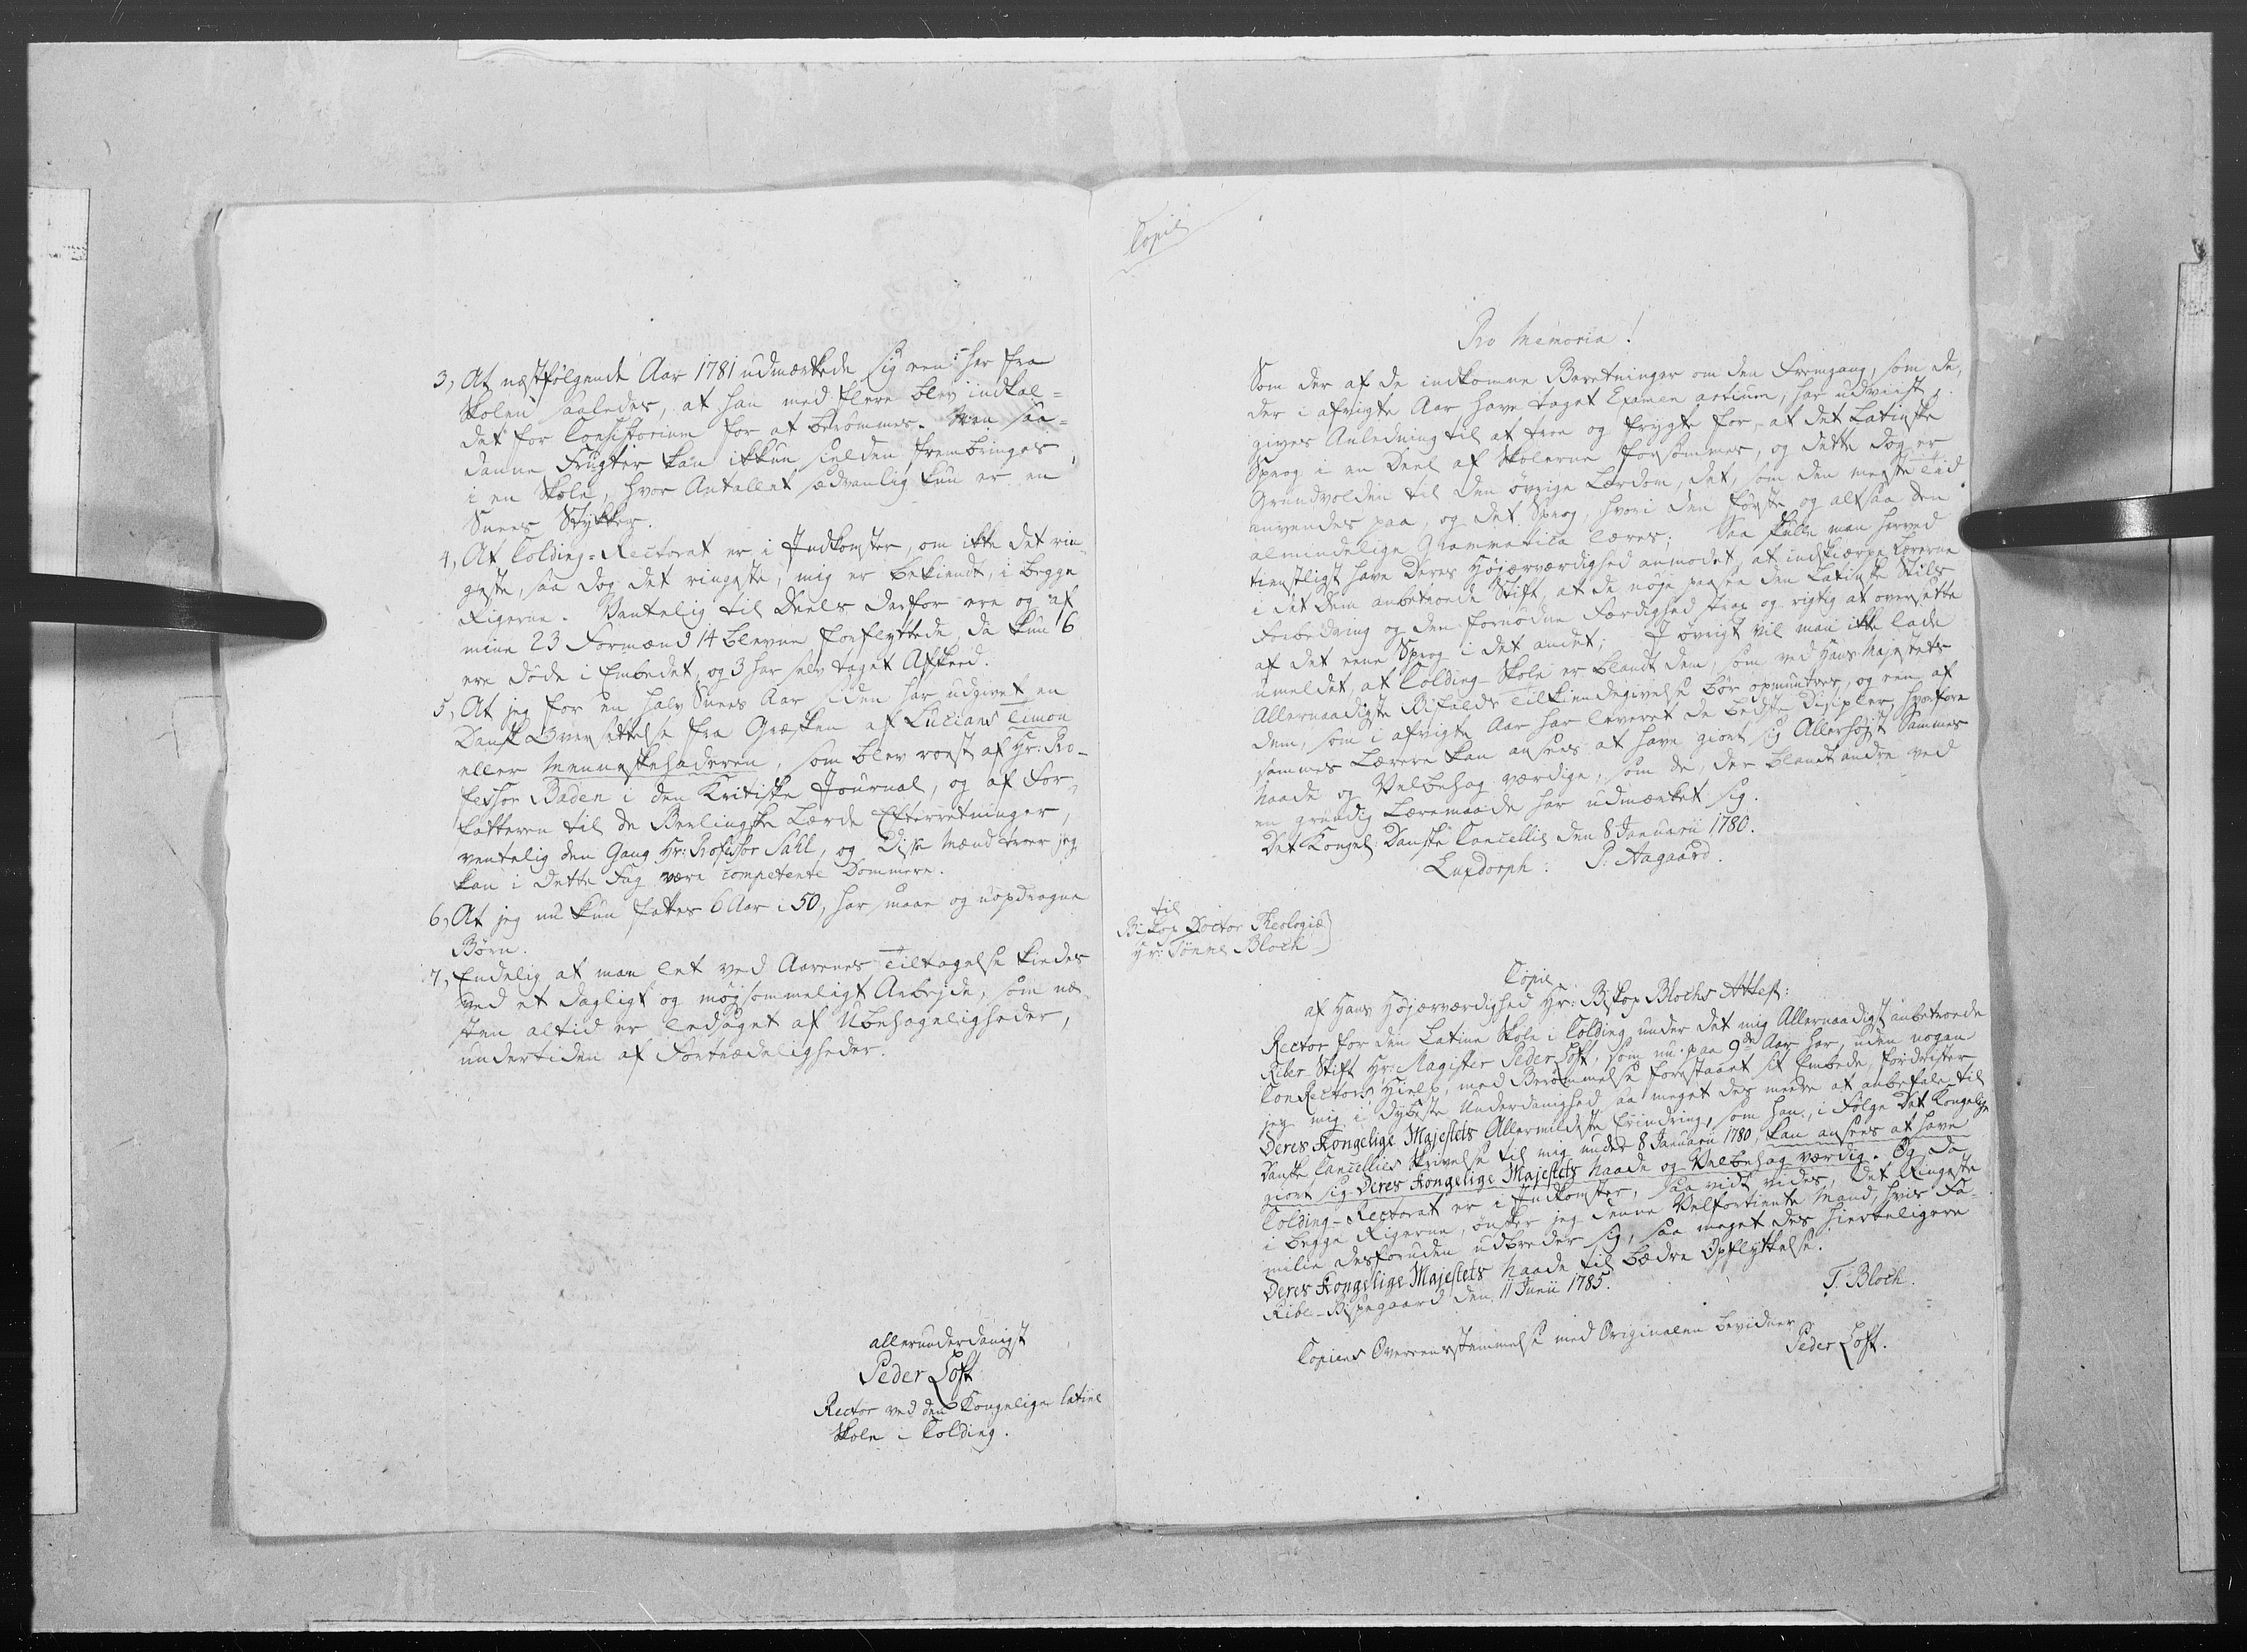 3, At næstfølgende Aar 1781 udmærkede sig een her fra
Skolen saaledes, at han med flere blev indkal=
det for Consistorium for at berømmes. Men saa=
danne Frugter kan ikkun sielden frembringes
i en Skole, hvor Antallet sædvanlig kun er en
Snees Stykker.
4, At Colding-Rectorat er i Indkomster, om ikke det rin-
geste, saa dog det ringeste, mig er bekiendt, i begge
Rigerne. Ventelig til Deels derfor ere og af
mine 23 Formænd 14 blevne forflyttede, da kun 6
ere døde i Embedet, og 3 har selv taget Afskeed.
5, At jeg for en halv Snees Aar siden har udgivet en
Dansk Oversættelse fra Græsken af Lucians Timon
eller Menneskehaderen, som blev roest af Hr: Pro-
fessor Baden i den Kritiske Journal, og af For-
fatteren til de Berlingske Lærde Efterretninger,
ventelig den Gang Hr: Professor Sahl, og disse Mænd troer jeg
kan i dette Fag være competente Dommere.
6, At jeg nu kun fattes 6 Aar i 50, har smaae og uopdragne
Børn.
7, Endelig at man let ved Aarenes Tiltagelse kiedes
ved et dagligt og møjsommeligt Arbejde, som næ-
sten altid er ledsaget af Ubehageligheder,
undertiden af Fortrædeligheder.
allerunderdanigst
Peder Loft
Rector ved den Kongelige Latine
Skole i Colding.
Copie
Pro Memoria!
Som der af de indkomne Beretninger om den Fremgang, som de,
der i afvigte Aar have taget Examen artium, har udviist,
gives Anledning til at troe og frygte for, at det Latinske
Sprog i en Deel af Skolerne forsømmes, og dette dog er
Grundvolden til den øvrige Lærdom, det, som den meste Tid
anvendes paa, og det Sprog, hvori den første og altsaa den
almindelige Grammatica læres; Saa skulle man herved
tienstligst have Deres Højærværdighed anmodet, at indskiærpe Lærerne
i det Dem anbetroede Stift, at de nøje paasee den Latinske Stiils
Forbedring og den fornødne Færdighed strax og rigtig at oversætte
af det eene Sprog i det andet; I øvrigt vil man ikke lade
umeldet, at Colding-Skole er blandt dem, som ved Hans Majestets
Allernaadigste Bifalds Tilkiendegivelse bør opmuntres, og een af
dem, som i afvigte Aar har leveret de bedste Disipler, hvorfore
sammes Lærere kan ansees at have giort sig Allerhøjst Sammes
Naade og Velbehag værdige, som de, der blandt andre ved
en grundig Læremaade har udmærket sig.
Det Kongel: Danske Cancellie den 8 Januarii 1780.
Luxdorph: P. Aagaard.
til
Biskop Doctor Theologiæ
Hr: Tønne Bloch
Copie
af Hans Højærværdighed Hr: Biskop Blochs Attest:
Rector for den Latine Skole i Colding under det mig Allernaadigst anbetroede
Riber-Stift Hr: Magister Peder Loft, som nu paa 9de Aar har, uden nogen
ConRectors Hielp, med Berømmelse forestaaet sit Embede, fordrister
jeg mig i dybeste Underdanighed saa meget des meere at anbefale til
Deres Kongelige Majestets Allermildeste Erindring, som han, i Følge Det Kongelige
Danske Cancellies Skrivelse til mig under 8 Januarii 1780, kan ansees at have
giort sig Deres Kongelige Majestets Naade og Velbehag værdig. Og da
Colding-Rectorat er i Indkomster, saa vidt vides, det Ringeste
i begge Rigerne, ønsker jeg denne Velfortiente Mand, hvis Fa-
milie desforuden udbreder sig, saa meget des hierteligere
Deres Kongelige Majestets Naade til bædre Opflyttelse.
Ribe-Bispegaard den 11 Junii 1785.
T. Bloch.
Copiens Overeensstemmelse med Originalen bevidner
Peder Loft.